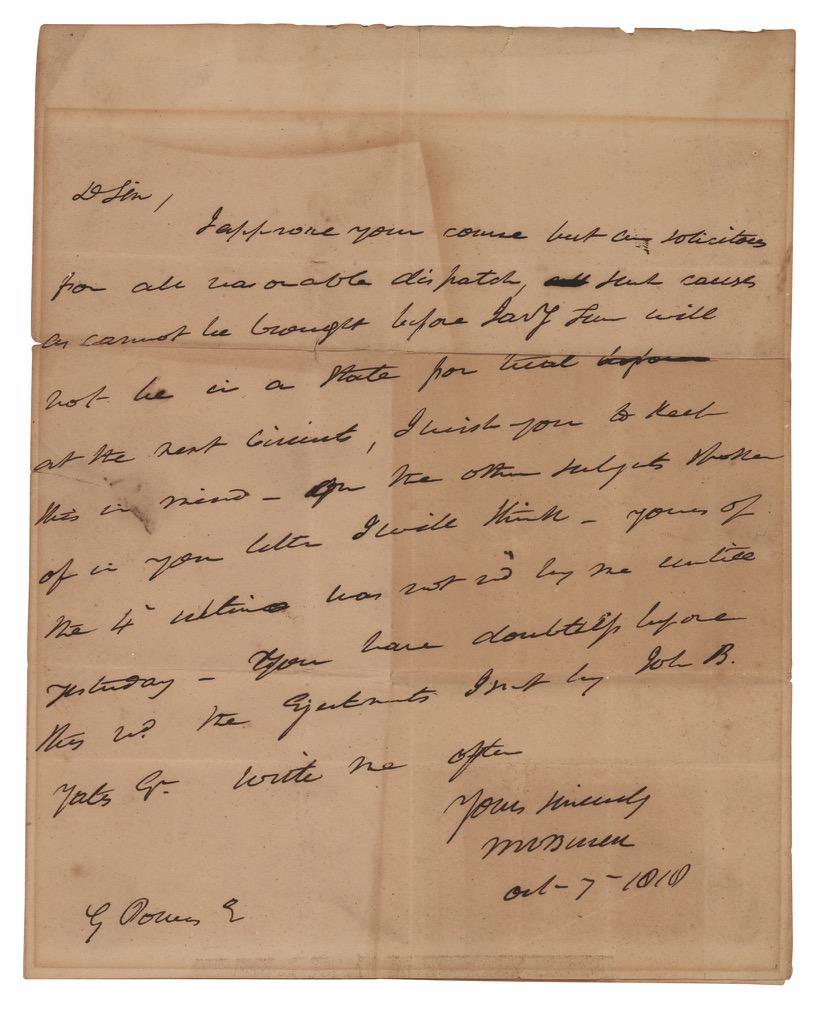 D Sir,
I approve your course but am solicitous
for all reasonable dispatch, such causes
as cannot be brought before Jany will
not be in a State for trial
at the next Circuits, I wish you to keep
this in mind - On the other subjects spoken
of in your letter I will think - yours of
the 4th was not recd by me untill
yesterday - You have doubtless before
this recd the Ejectments I sent by John B.
Yates Esqr. Write me often
Yours sincerely
MVBuren
Oct- 7- 1818
G Powers E